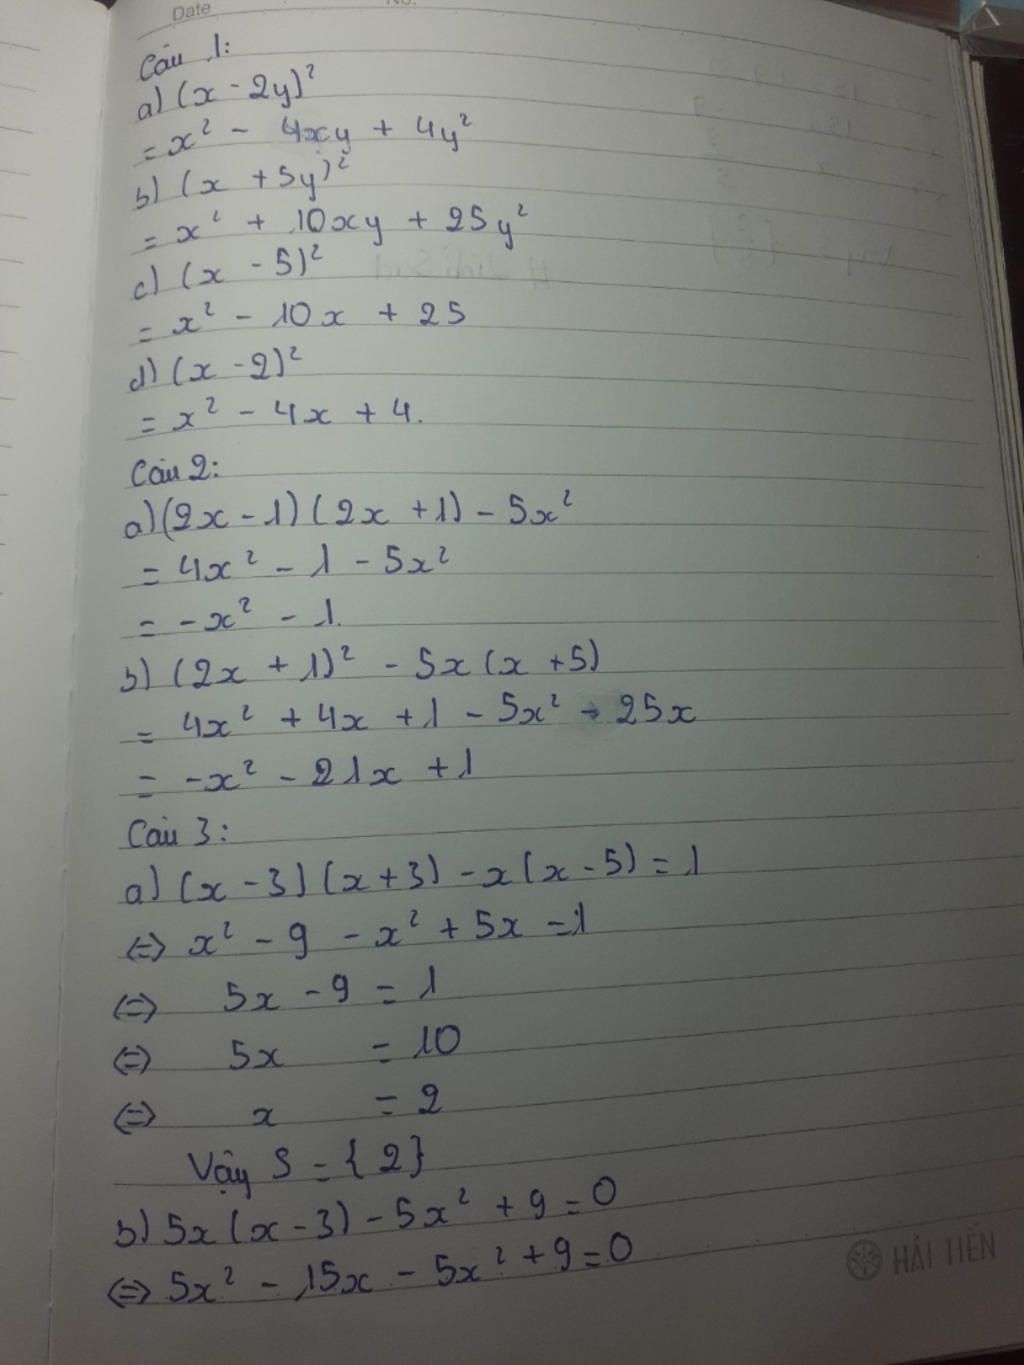 Date No.
Câu 1:
a) (x - 2y)²
= x² - 4xy + 4y²
b) (x + 5y)²
= x² + 10xy + 25y²
c) (x - 5)²
= x² - 10x + 25
d) (x - 2)²
= x² - 4x + 4.
Câu 2:
a) (2x - 1) (2x + 1) - 5x²
= 4x² - 1 - 5x²
= -x² - 1.
b) (2x + 1)² - 5x (x + 5)
= 4x² + 4x + 1 - 5x² - 25x
= -x² - 21x + 1
Câu 3:
a) (x - 3) (x + 3) - x (x - 5) = 1
⇔ x² - 9 - x² + 5x = 1
⇔ 5x - 9 = 1
⇔ 5x = 10
⇔ x = 2
Vậy S = {2}
b) 5x (x - 3) - 5x² + 9 = 0
⇔ 5x² - 15x - 5x² + 9 = 0
HẢI TIẾN